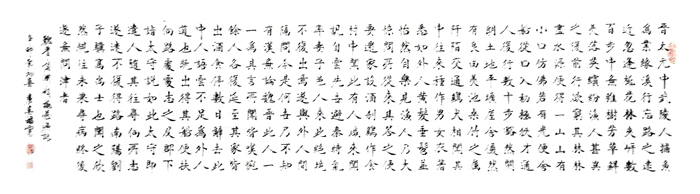 晉太元中武陵人捕魚
為業緣溪行忘路之遠
近忽逢桃花林夾岸數
百步中無雜樹芳草鮮
美落英繽紛漁人甚異
之復前行欲窮其林林
盡水源便得一山山有
小口仿佛若有光便舍
船從口入初極狹才通
人復行數十步豁然開
朗土地平曠屋舍儼然
有良田美池桑竹之屬
阡陌交通雞犬相聞其
中往來種作男女衣著
悉如外人黃髮垂髫並
怡然自樂見漁人乃大
驚問所從來具答之便
要還家設酒殺雞作食
村中聞有此人咸來問
訊自云先世避秦時亂
率妻子邑人來此絕境
不復出焉遂與外人間
隔問今是何世乃不知
有漢無論魏晉此人一
一為具言所聞皆嘆惋
餘人各復延至其家皆
出酒食停數日辭去此
中人語云不足為外人
道也既出得其船便扶
向路處處志之及郡下
詣太守說如此太守即
遣人隨其往尋向所志
遂迷不復得路南陽劉
子驥高尚士也聞之欣
然規往未果尋病終後
遂無問津者